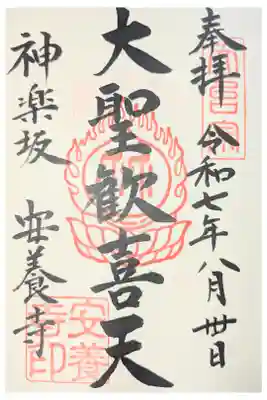 奉拝 令和七年八月卅日
大聖歓喜天
神楽坂 安養寺
安養
寺印